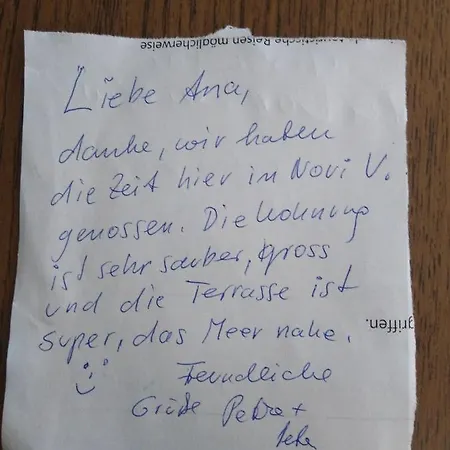 touristische Reisen möglicherweise
Liebe Ana,
danke, wir haben
die Zeit hier in Novi V.
genossen. Die Wohnung
ist sehr sauber, gross
und die Terrasse ist
griffen.
super, das Meer nahe.
Freundliche
Grüße Petra +